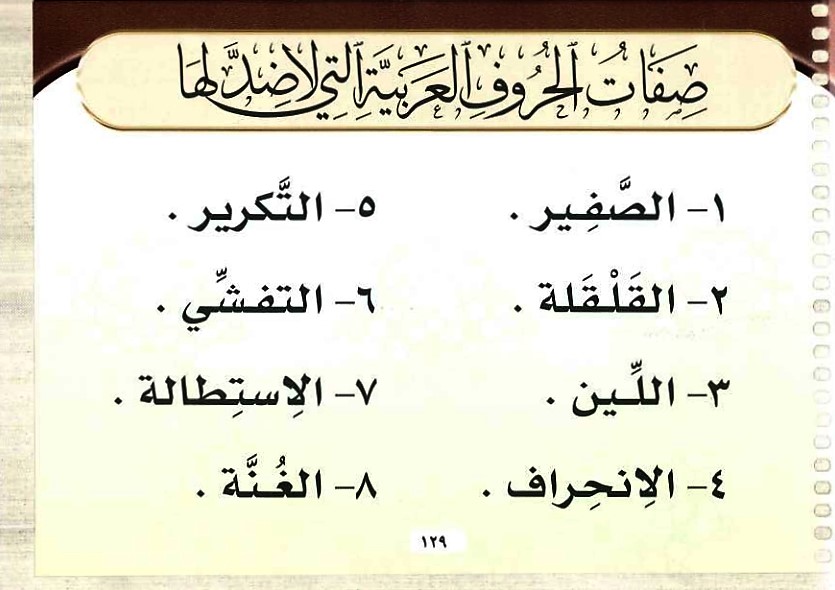 صِفَاتُ الحُرُوفِ العَرَبِيَّةِ الَّتِي لَا ضِدَّ لَهَا
١- الصَّفِير .
٢- القَلْقَلة .
٣- اللِّين .
٤- الِانحِراف .
٥- التَّكرير .
٦- التفشِّي .
٧- الِاستِطالة .
٨- الغُنَّة .
١٢٩